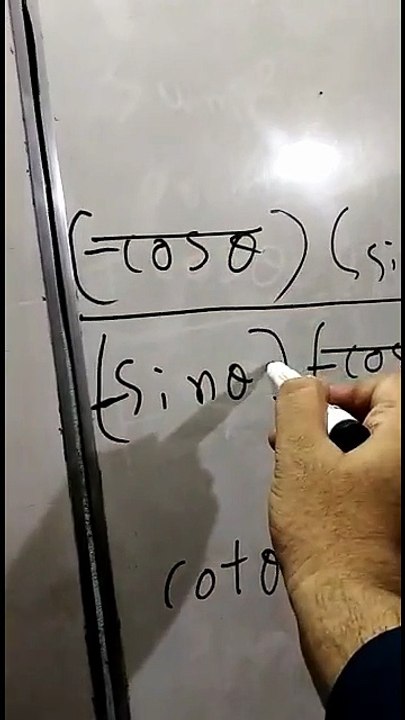 (-cosθ) (si
(-sinθ) (-cos
cotθ